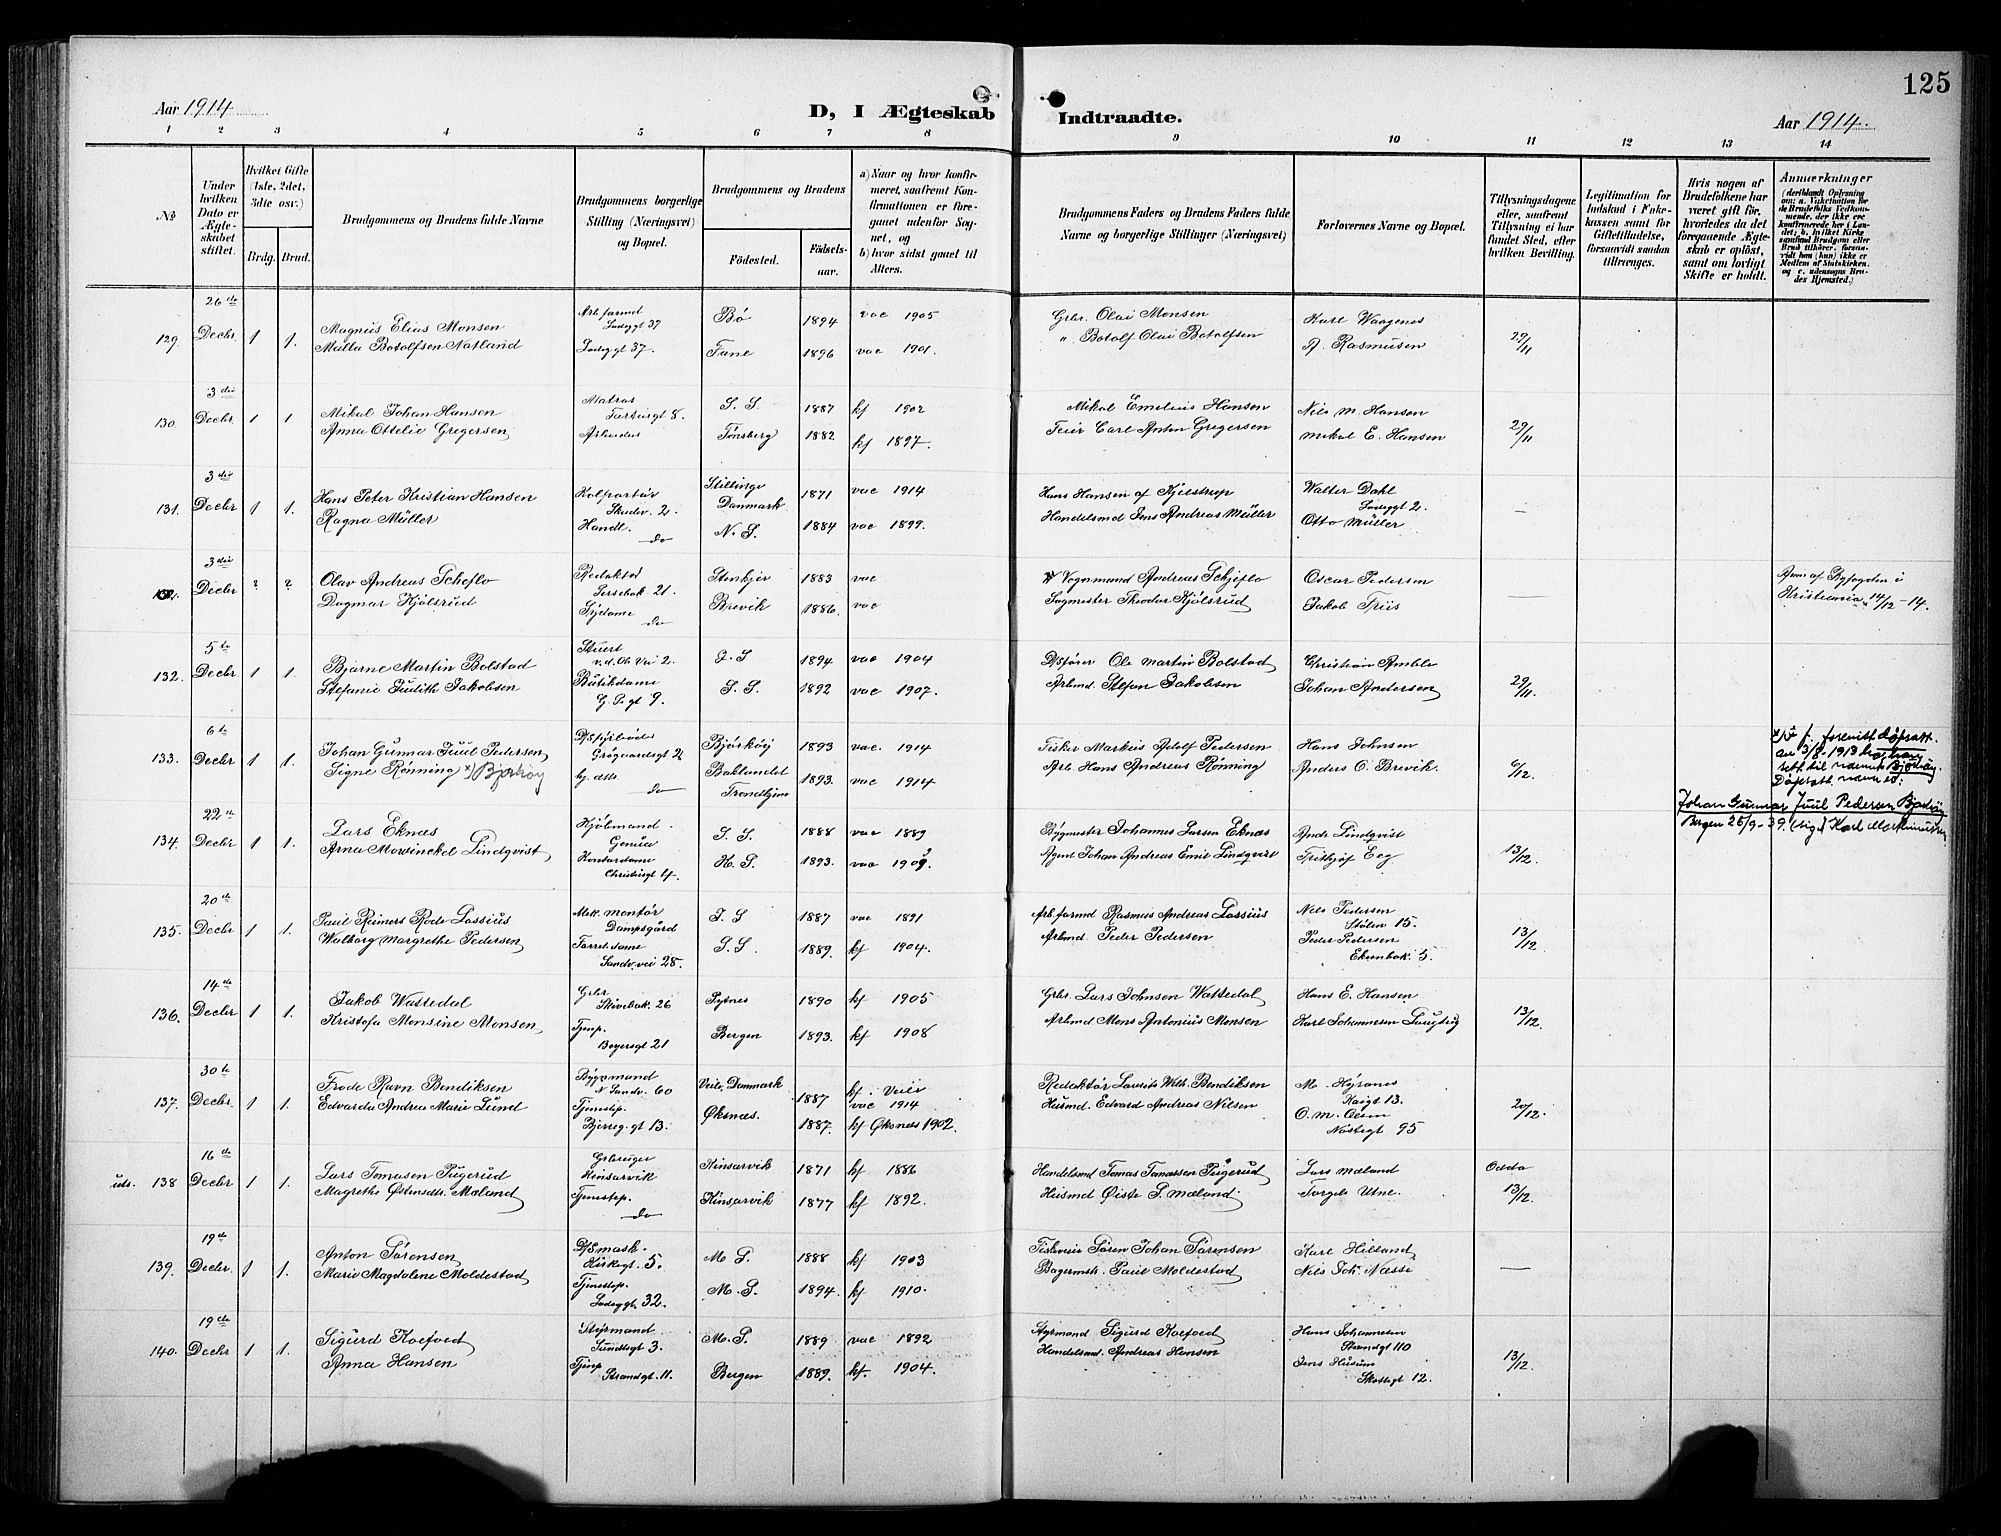 125
Aar 1914
D, I Ægteskab Indtraadte.
Aar 1914.
1 2 3 4 5 6 7 8 9 10 11 12 13 14
No
Under hvilken Dato er Ægteskabet stiftet.
Hvilket Gifte (1ste, 2det, 3die osv.)
Brdg. Brud.
Brudgommens og Brudens fulde Navne
Brudgommens borgerlige Stilling (Næringsvei) og Bopæl.
Brudgommens og Brudens
Fødested. Fødselsaar.
a) Naar og hvor konfirmeret, saafremt Konfirmationen er foregaaet udenfor Sognet, og
b) hvor sidst gaaet til Alters.
Brudgommens Faders og Brudens Faders fulde Navne og borgerlige Stillinger (Næringsvei)
Forlovernes Navne og Bopæl.
Tillysningsdagene eller, saafremt Tillysning ei har fundet Sted, efter hvilken Bevilling.
Legitimation for Indskud i Enkekassen samt for Giftetilladelse, forsaavidt saadan tiltrænges.
Hvis nogen af Brudefolkene har været gift før, hvorledes da det foregaaende Ægteskab er opløst, samt om lovligt Skifte er holdt.
Anmærkninger
(deriblandt Oplysning om: a. Vakcination for de Brudefolks Vedkommende, der ikke ere konfirmerede her i Landet; b. hvilket Kirkesamfund Brudgom eller Brud tilhører, forsaavidt han (hun) ikke er Medlem af Statskirken, og c. udensogns Brudes Hjemsted.)
129. 26de Decbr 1 1. Magnus Elias Monsen Arb. formd Ladeggt 37 Bø 1894 vac 1905 Grbr. Olai Monsen Karl Waagenes 29/11
Mulla Botolfsen Natland Ladeggt 37. Fane 1896 vac 1901. " Botolf Olai Botolfsen A. Rasmusen
130. 3die Decbr 1 1 Mikal Johan Hansen Matros 8. S. S. 1887 kf 1902 Mikal Emilius Hansen Nils M. Hansen 29/11
Anna Ottelie Gregersen Tønsberg 1882 kf 1897. Feier Carl Anton Gregersen Mikal E. Hansen
131. 3die Decbr 1 1. Hans Peter Kristian Hansen Kolportør Skudev. 2. Stillinge Danmark 1871 vac 1914 Hans Hansen af Kjelstrup Walter Dahl Ladeggt 2. —
Ragna Müller Handl. do N. S. 1884 vac 1899. Handelsmd Jens Andreas Müller Otto Müller
3die Decbr ? ? Olav Andreas Scheflo Redaktør 21. Stenkjer 1883 vac Vognmand Andreas Schjeflo Oscar Pedersen —
Dagmar Kjølsrud Sydame do Brevik 1886. vac Sagmester Theodor Kjølsrud Jakob Friis
Anm. af Byfogden i Christiania 14/12-14.
132. 5te Decbr 1 1. Bjarne Martin Bolstad Stuert v. d. Ole Vei 2. J. S 1894 vac 1904 D/Sfører Ole Martin Bolstad Christian Amble 29/11.
Stefanie Judith Jakobsen Butikdame G. P. gt 9. S. S. 1892 vac 1907. Arbmd. Stefan Jakobsen Johan Andersen
133. 6te Decbr 1 1. Johan Gunnar Juul Pedersen Bjarkøy 1893 vac. 1914 Fisker Markus Adolf Pedersen Hans Johnsen 6/12.
Signe Rønning x) Bjarkøy do Baklandet Trondhjem 1893. vac 1914 Arb. Hans Andreas Rønning Anders O. Brevik.
3/8. 1913
Døpsatt. navn er:
Johan Gunnar Juul Pedersen Bjarkøy
Bergen 26/9-39. (sign) Karl Markmussen
134. 22de Decbr 1 1. Lars Eknæs Kjøbmand. Genua S. S. 1888 vac 1889 Bygmester Johannes Larsen Eknæs Andr. Lindqvist 13/12.
Arna Mowinckel Lindqvist Kontordame Christiesgt 4. H. S. 1893. vac 1909 Agent Johan Andreas Emil Lindqvist Fritjof Eeg
135. 20de Decbr 1 1. Paul Reimers Rode Lassius Mek. montør Damsgård J. S 1887 vac 1891 Arb. formd Rasmus Andreas Lassius Nils Pedersen Stølen 15. 13/12.
Walborg Margrethe Pedersen Forret. dame Sandv. vei 28. S. S 1889. kf 1904. Arbmd Peder Pedersen Peder Pedersen 5.
136. 14de Decbr 1 1. Jakob Wattedal Grbr Skivebak. 26 1890 kf 1905 Grbr. Lars Johnsen Wattedal Hans E. Hansen 13/12.
Kristofa Monsine Monsen Tjnp. Beyersgt 21 Bergen 1893. kf 1908 Arbmd Mons Antonius Monsen Karl Johannesen
137. 30te Decbr. 1 1. Frode Ravn Bendiksen N. Sandv. 60 Veile, Danmark 1887 kf. Veile vac 1914 Redaktør Laurits Wilh. Bendiksen M. Kaigt 13. 20/12.
Edvarda Andrea Marie Lund Tjenestep. Bjerreg. gt 13. Øksnæs. 1887. kf Øksnæs 1902. Husmd. Edvard Andreas Nilsen O. M. Nøstegt 95
uds. 138 16de Decbr 1 1. Lars Tomasen Pugerud Gbrbruger Kinsarvik Kinsarvik 1871 kf 1886 Handelsmd Tomas Tomassen Pugerud Lars Mæland Odda 13/12.
Magrethe Østensdtr. Mæland Tjenestep. do Kinsarvik 1877 kf 1892. Husmd Øiste S. Mæland. Torgels Utne.
139. 19de Decbr. 1 1. Anton Sørensen D/Smask. Kirkegt. 5. M. S. 1888 kf 1903 Søren Johan Sørensen Karl Hilland —
Marie Magdalene Moldestad Tjenestep. Ladeggt. 32. M. S. 1894. kf 1910. Bagermst. Paul Moldestad Nils Joh. Næsse
140. 19de Decbr 1 1. Sigurd Koefoed Styrmand Sundtsgt 3. M. S. 1889 vac 1892 Styrmand Sigurd Koefoed Hans Johannesen Strandgt 110 13/12.
Anna Hansen Tjnp Strandgt. 11. Bergen 1889. kf. 1904. Handelsmd. Andreas Hansen Jens Husum Skottegt 12.